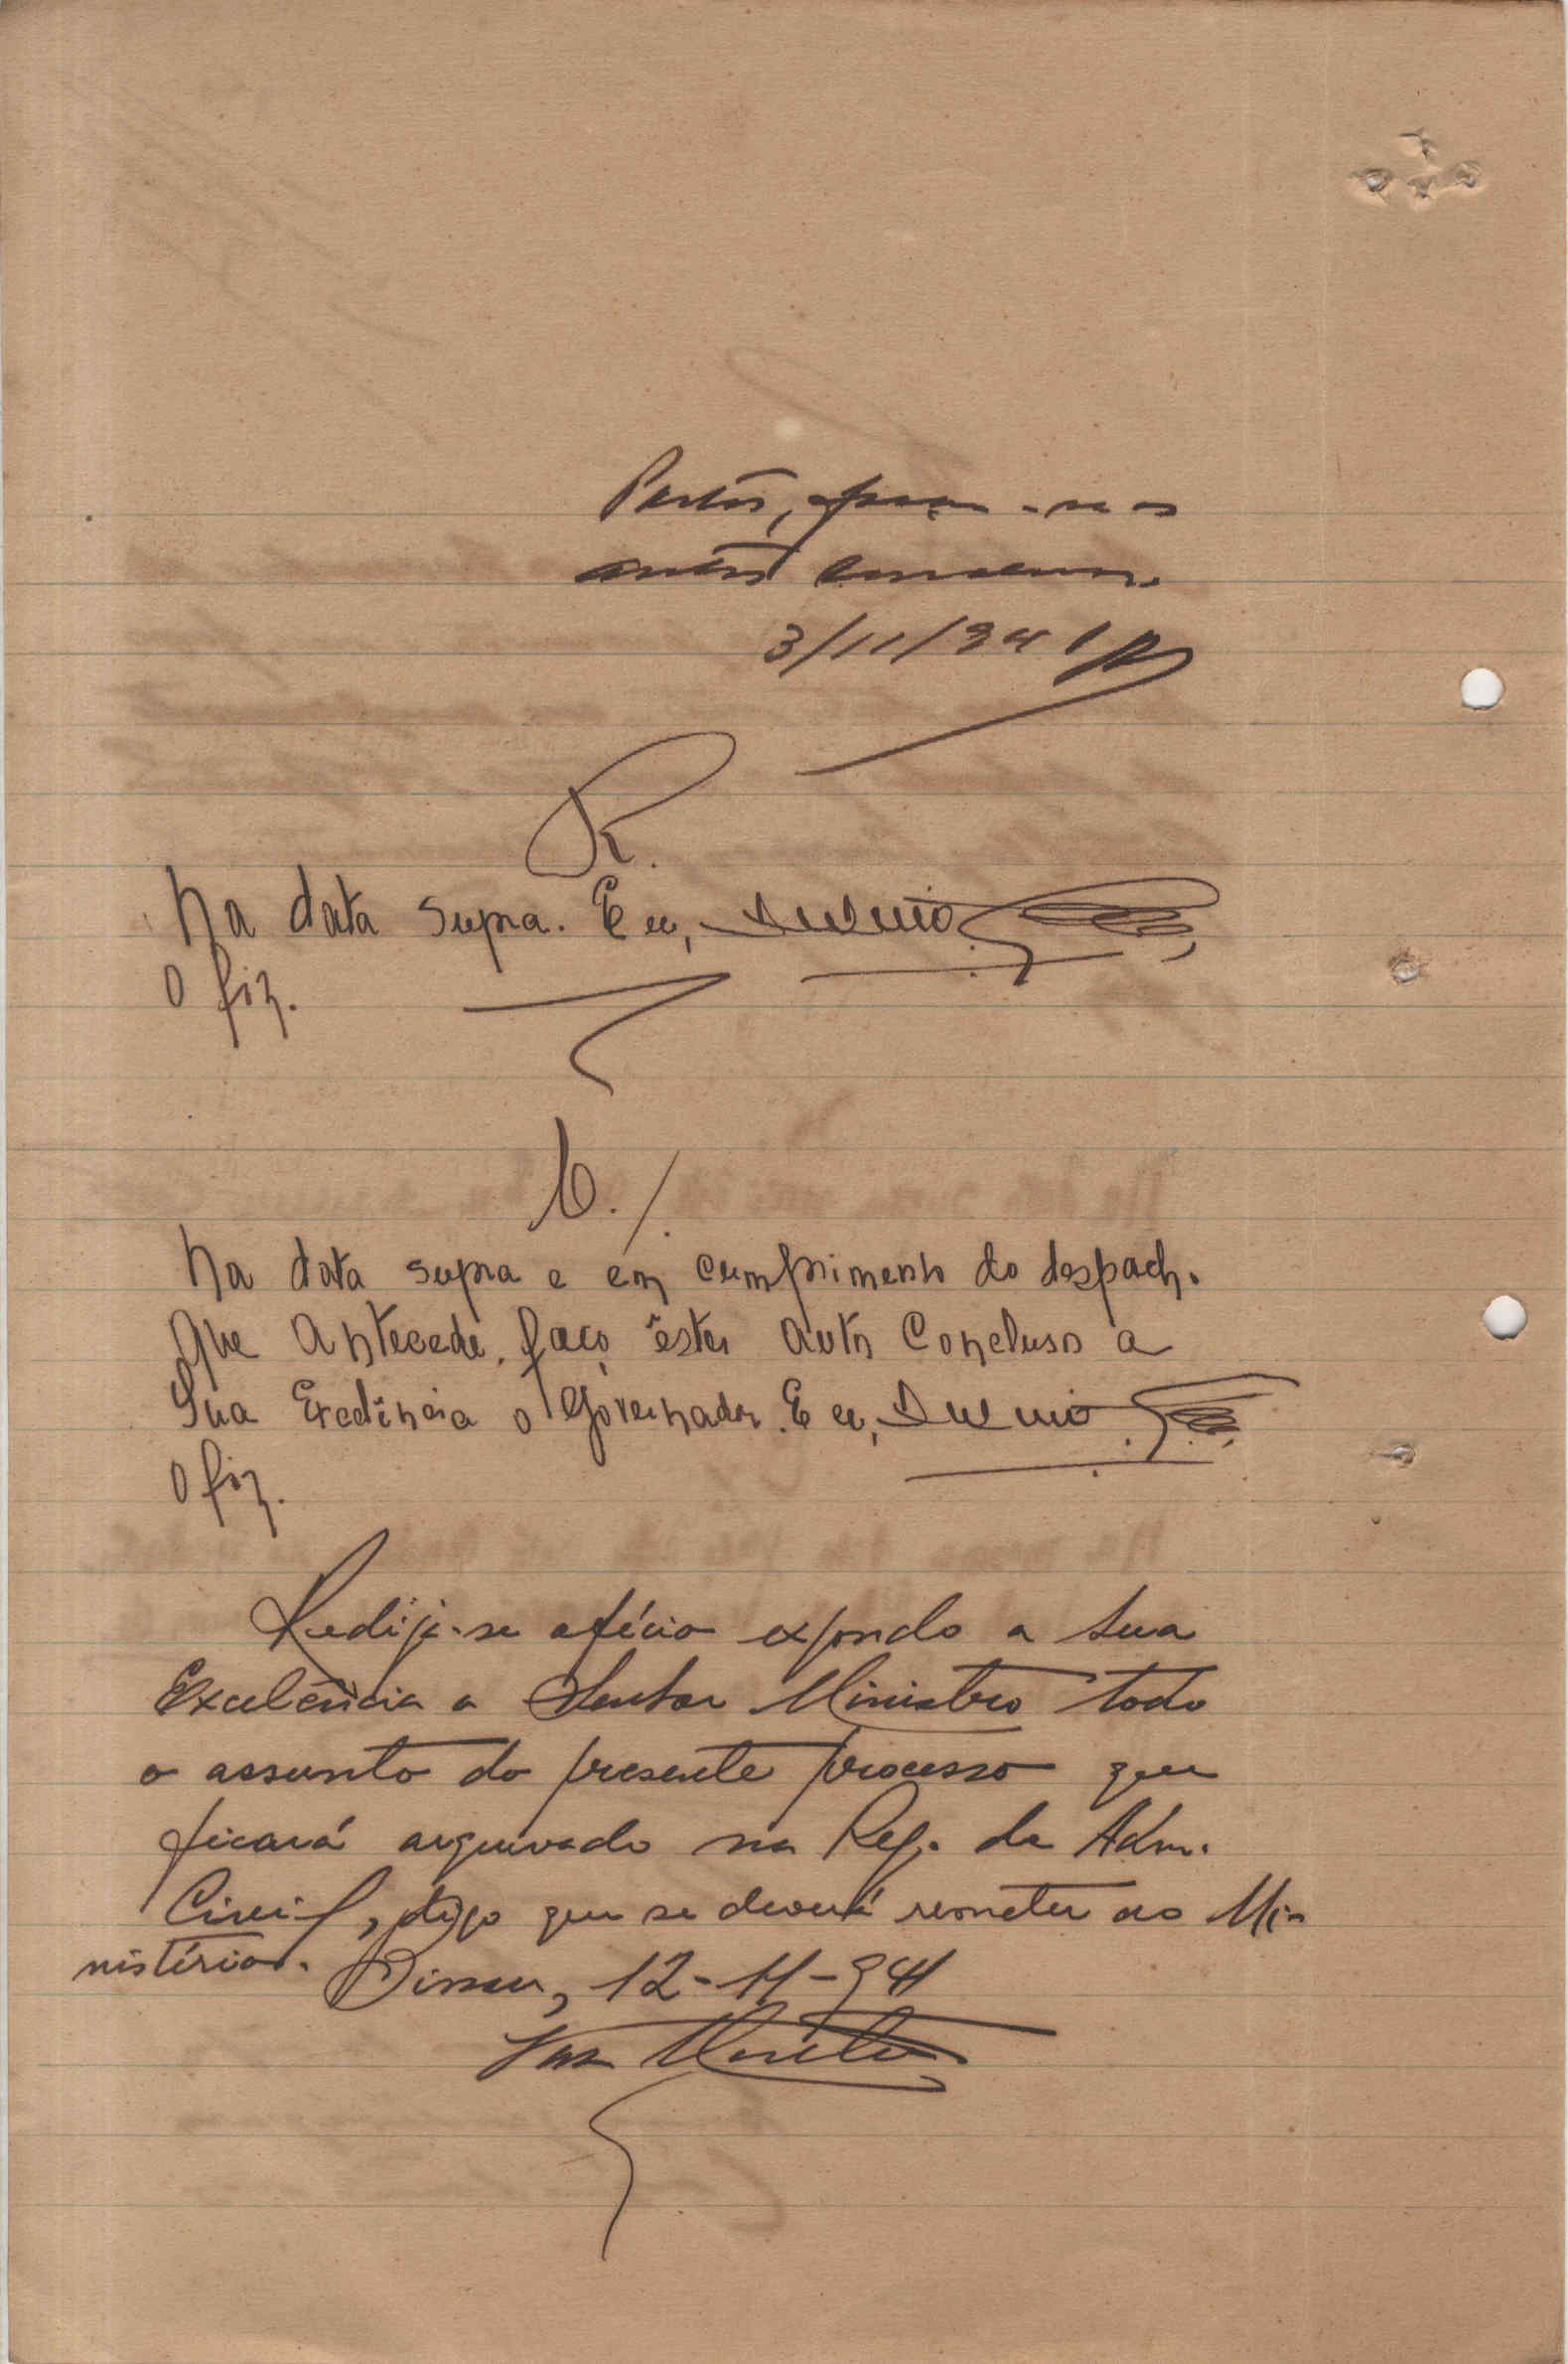 3/11/941
R.
Na data supra. Eu,
o fiz.
C./
Na data supra e em cumprimento do despacho
que antecede, faço êstes autos conclusos a
Sua Excelência o Governador. Eu,
o fiz.
Redija-se ofício expondo a Sua
Excelência o Senhor Ministro todo
o assunto do presente processo que
ficará arquivado na Rep. da Adm.
Civil, digo que se deverá remeter ao Mi-
nistério. Bissau, 12-11-941
Vaz Monteiro